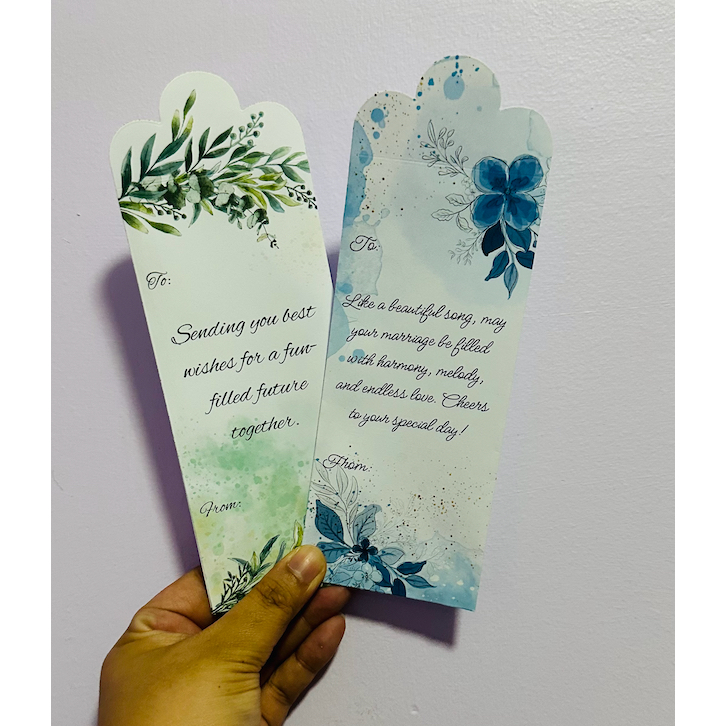 To:
Sending you best
wishes for a fun-
filled future
together.
From:
To:
Like a beautiful song, may
your marriage be filled
with harmony, melody,
and endless love. Cheers
to your special day!
From: